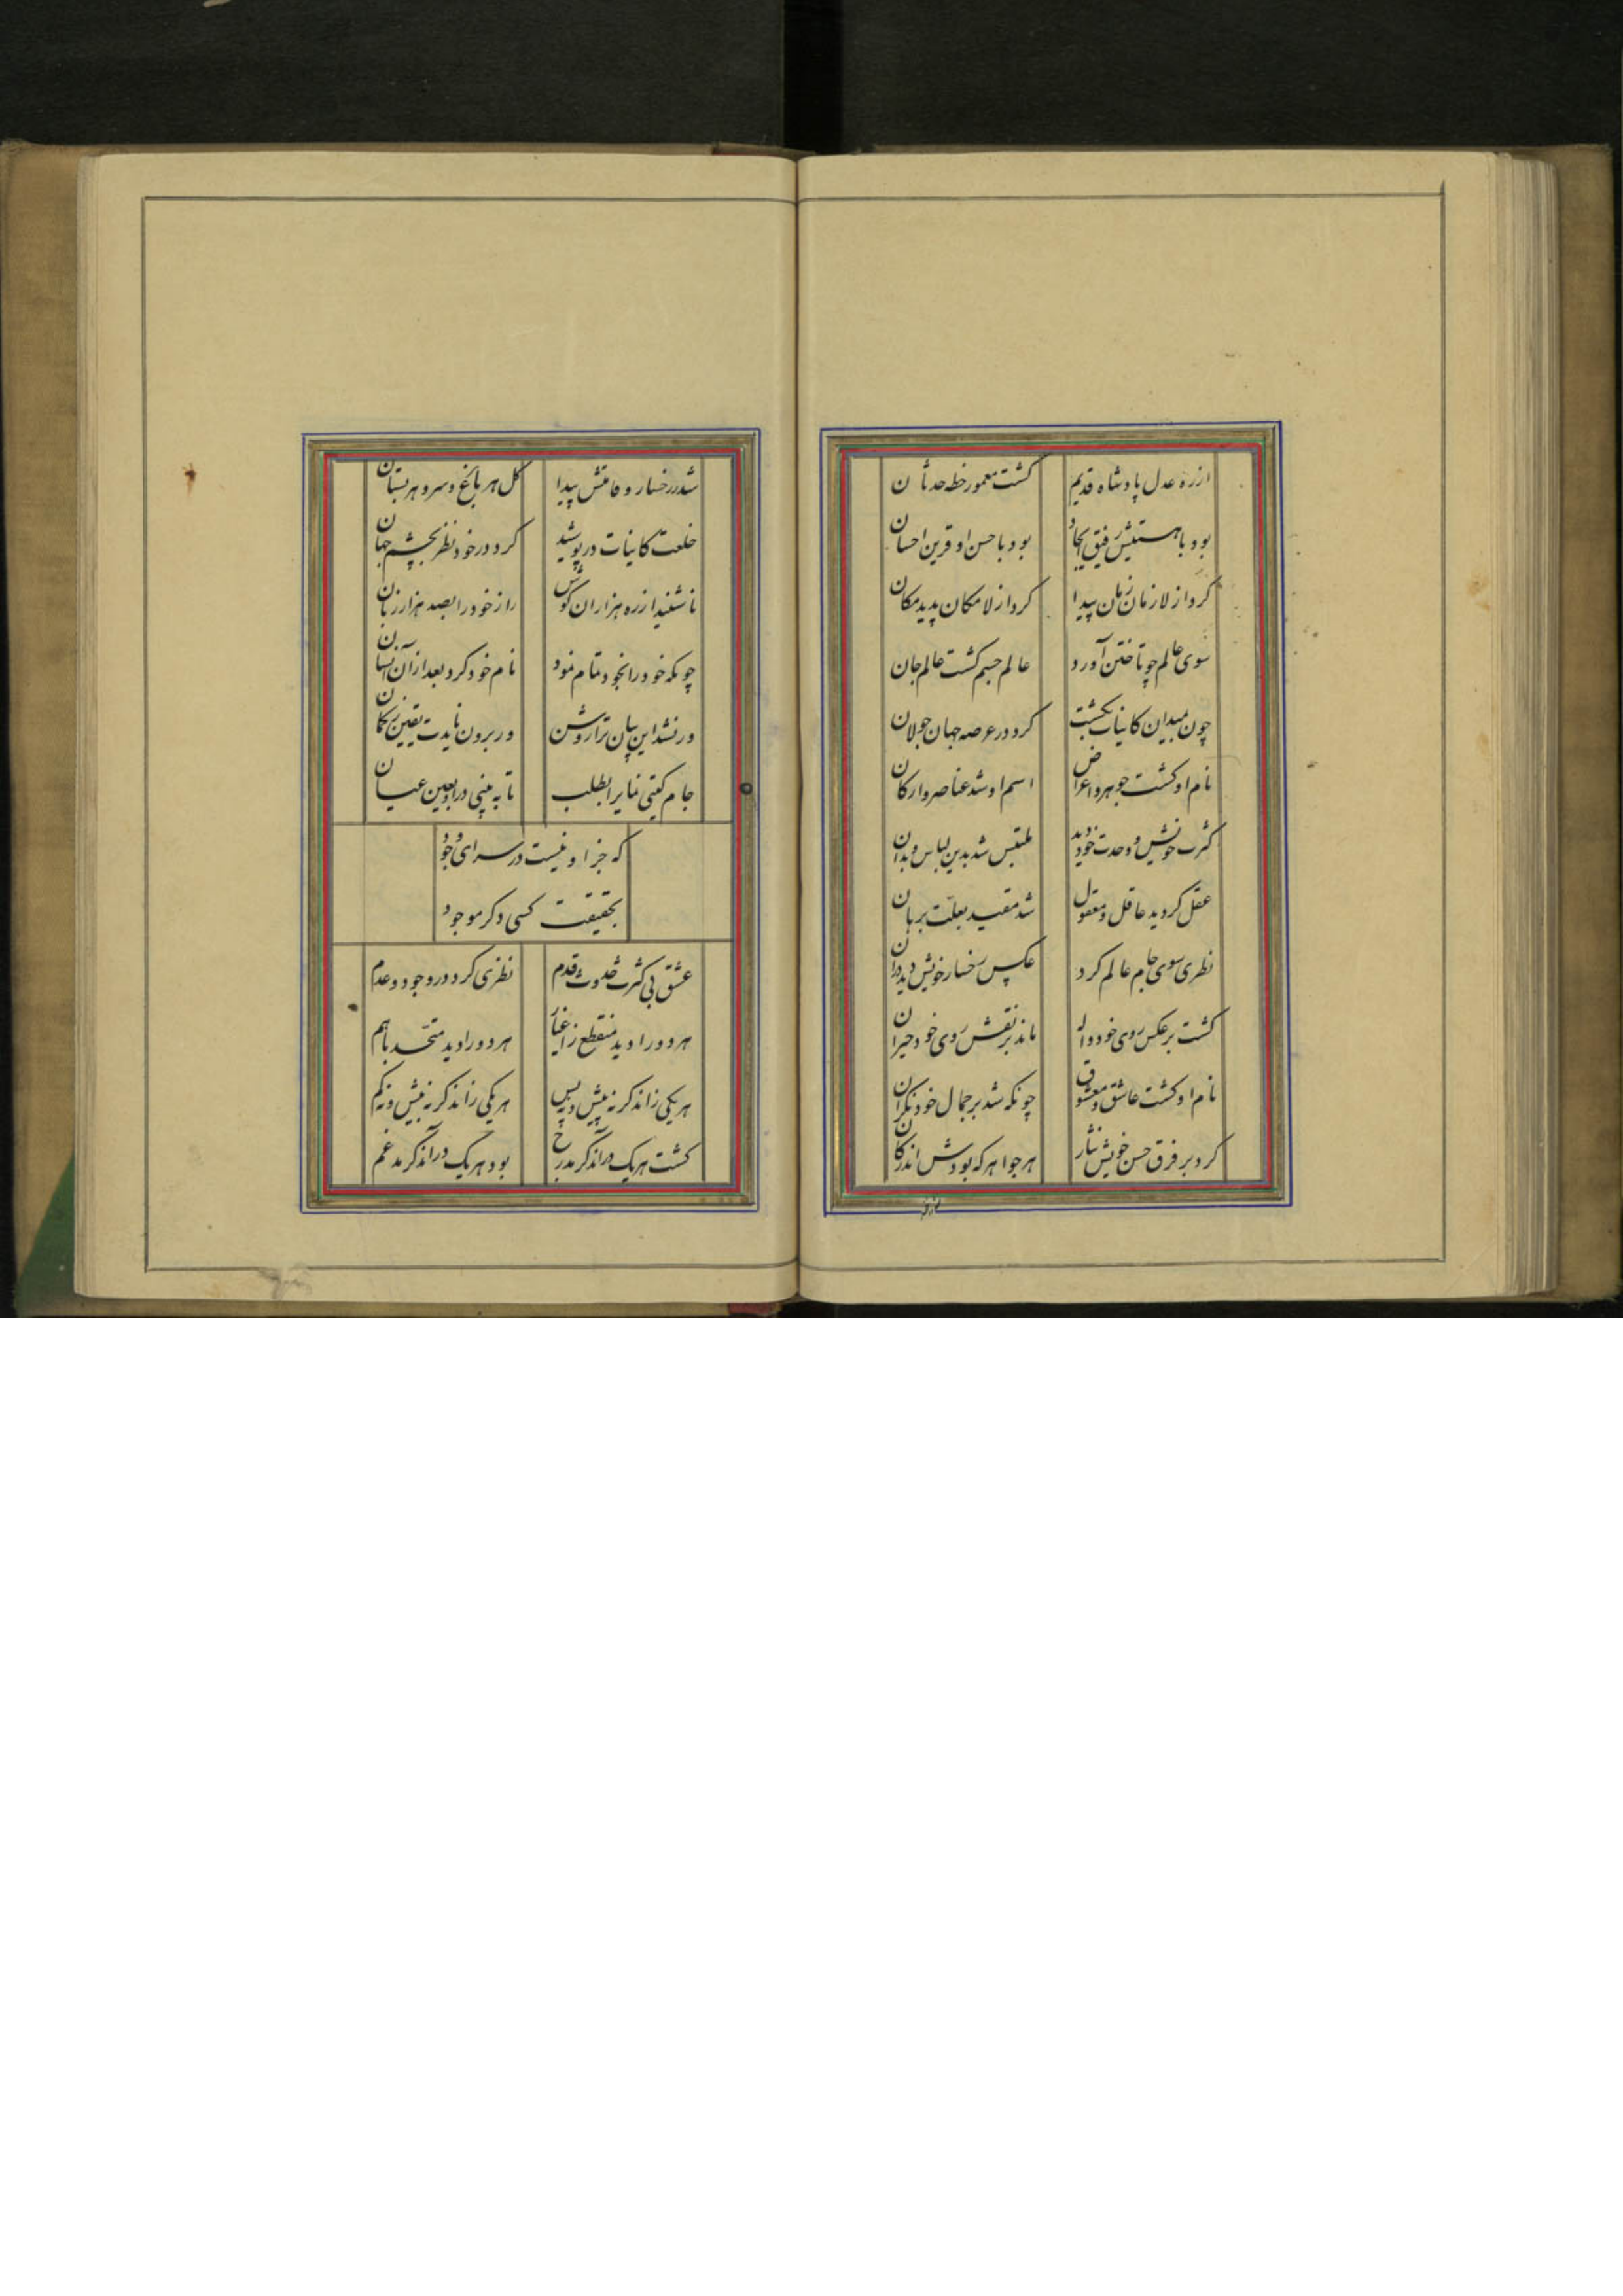 ازره عدل پادشاه قدیم کشت معمور خطه حدثان
بود با هستیش رفیق ایجاد بود با حسن او قرین احسان
کرد از لازمان زمان پیدا کرد از لامکان پدید مکان
سوی عالم چو تاختن آورد عالم جسم کشت عالم جان
چون بمیدان کاینات بکشت کرد در عرصه جهان جولان
نام او کشت جوهر و اعراض اسم او شد عناصر و ارکان
کثرت خویش و وحدت خود دید ملتبس شد بدین لباس و بدان
عقل کردید عاقل و معقول شد مقید بعلت برهان
نظری سوی جام عالم کرد عکس رخسار خویش دید در آن
کشت بر عکس روی خود واله ماند بر نقش روی خود حیران
نام او کشت عاشق و معشوق چونکه شد بر جمال خود نکران
کرد بر فرق حسن خویش نثار هر جواهر که بودش اندر کان
شد ز رخسار و قامتش پیدا کل هر باغ و سرو هر بستان
خلعت کاینات در پوشید کرد در خود نظر بچشم جهان
تا شنید از ره هزاران کوش راز خود را بصد هزار زبان
چونکه خود را بخود تمام نمود نام خود کرد بعد از آن انسان
ور نشد این بیان ترا روشن ور برون نایدت یقین ز کمان
جام کیتی نمای را بطلب تا به بینی در او بعین عیان
که جز او نیست در سرای وجود
بحقیقت کسی دکر موجود
عشق بی کثرت حدوث و قدم نظری کرد در وجود و عدم
هر دو را دید منقطع ز اغیار هر دو را دید متحد با هم
هر یکی زاندکر نه پیش و نه پس هر یکی زاندکر نه بیش و نه کم
کشت هر یک در آندکر مدرج بود هر یک در آندکر مدغم